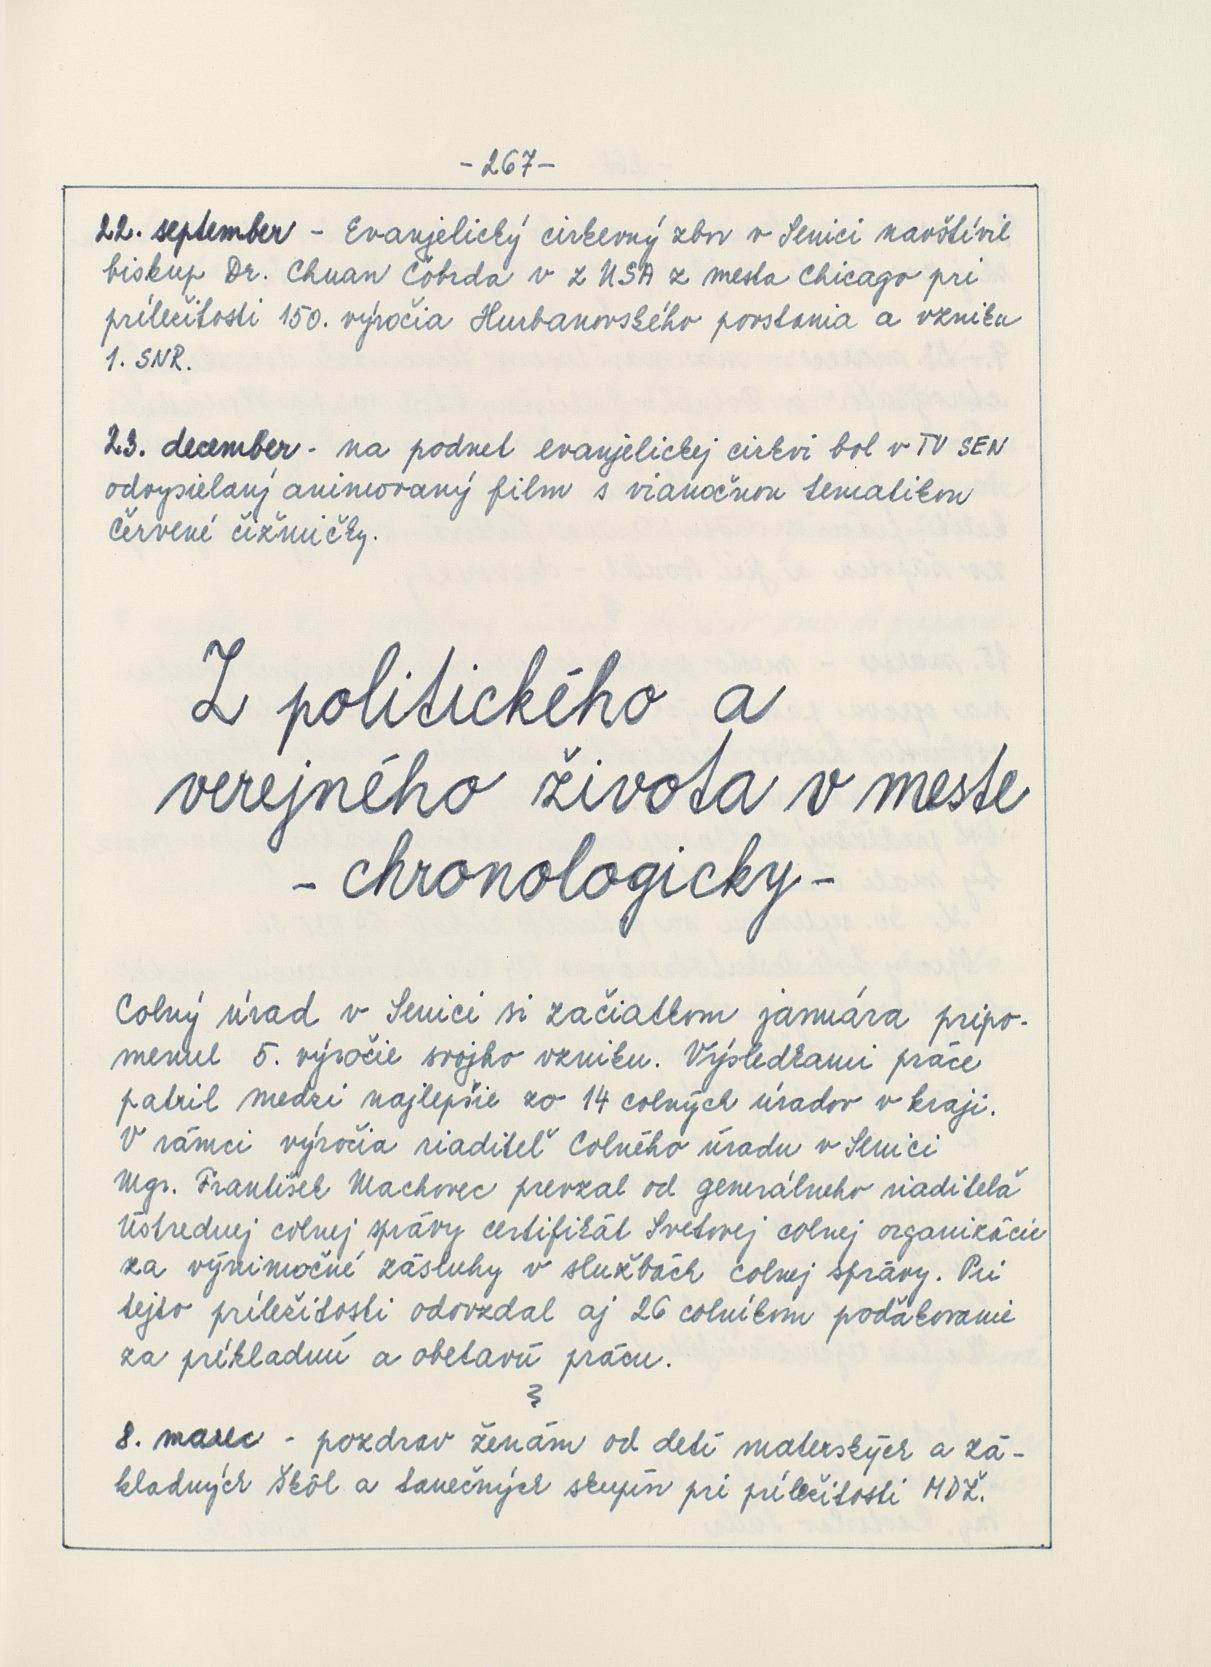 - 267 -
22. september - Evanjelický cirkevný zbor v Senici navštívil
biskup Dr. Chuan Čobrda v z USA z mesta Chicago pri
príležitosti 150. výročia Hurbanovského povstania a vzniku
1. SNR.
23. december - na podnet evanjelickej cirkvi bol v TV SEN
odvysielaný animovaný film s vianočnou tematikou
Červené čižmičky.
Z politického a
verejného života v meste
- chronologicky -
Colný úrad v Senici si začiatkom januára pripo-
menul 5. výročie svojho vzniku. Výsledkami práce
patril medzi najlepšie zo 14 colných úradov v kraji.
V rámci výročia riaditeľ Colného úradu v Senici
Mgr. František Machovec prevzal od generálneho riaditeľa
Ústrednej colnej správy certifikát Svetovej colnej organizácie
za výnimočné zásluhy v službách colnej správy. Pri
tejto príležitosti odovzdal aj 26 colníkom poďakovanie
za príkladnú a obetavú prácu.
8. marec - pozdrav ženám od detí materských a zá-
kladných škôl a tanečných skupín pri príležitosti MDŽ.